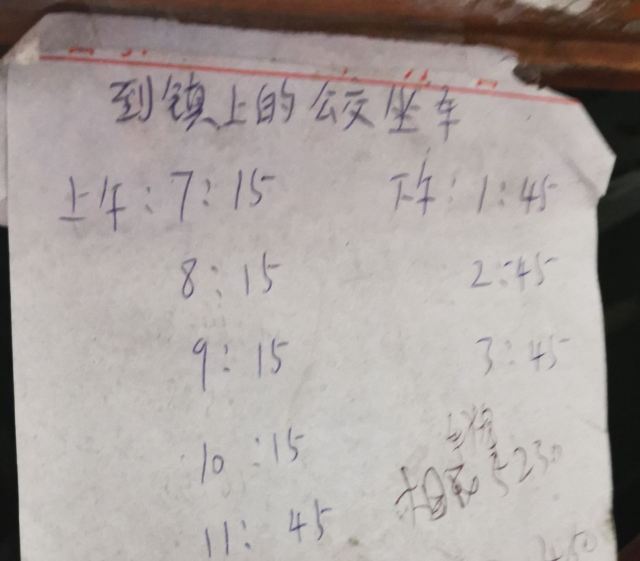 到镇上的公交坐车
上午：7：15 下午：1：45
8：15 2：45
9：15 3：45
10：15
5230
11：45